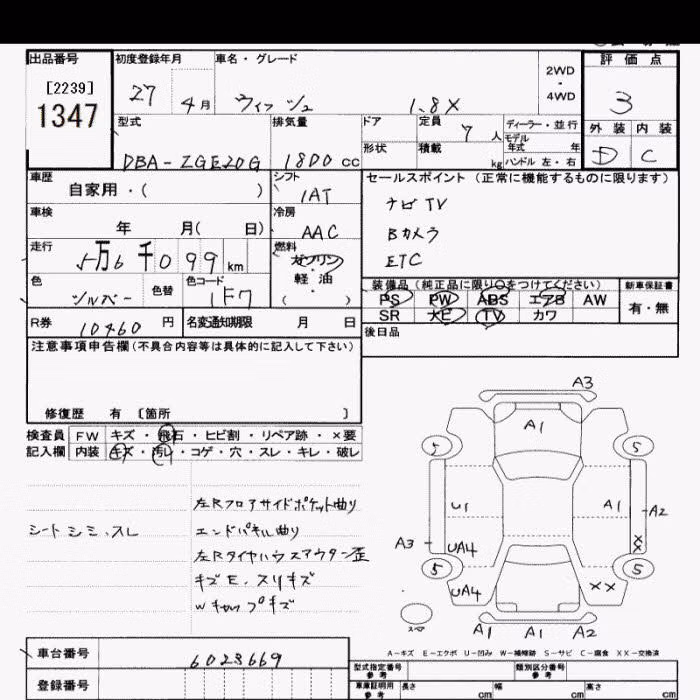 出品番号 初度登録年月 車名・グレード 評価点
[2239]
1347
27 4月 ウィッシュ 1.8X
2WD
・
4WD
3
外装 内装
D C
型式 排気量 ドア 定員 7人 ディーラー・並行
DBA-ZGE20G 1800cc
形状 積載 kg
モデル年式 年
ハンドル 左・右
車歴 シフト セールスポイント(正常に機能するものに限ります)
自家用・( ) IAT
ナビTV
車検 冷房
年 月( 日) AAC
Bカメラ
走行 燃料
5万6千099km ガソリン
ETC
軽・油
( )
色 シルバー 色替 色コード 1F7
装備品(純正品に限り○をつけてください) 新車保証書
PS PW ABS エアB AW 有・無
SR ナビ TV カワ
R券 10460円 名変通知期限 月 日
後日品
注意事項申告欄(不具合内容等は具体的に記入して下さい)
修復歴 有 〔箇所 〕
検査員 FW キズ・飛石・ヒビ割・リペア跡・×要
記入欄 内装 キズ・汚レ・コゲ・穴・スレ・キレ・破レ
左Rフロアサイドポケット曲り
シートシミ、スレ エンドパネル曲り
左Rタイヤハウスアウター歪
キズE、スリキズ
Wキャップキズ
A3
A1
5 5
U1 A1 A2
A3 UA4 XX
5 5
UA4 XX
スペア
A1 A1 A2
A-キズ E-エクボ U-凹み W-補修跡 S-サビ C-腐食 XX-交換済
車台番号 6023669
登録番号
型式指定番号 参考 類別区分番号 参考
車庫証明用 参考 長さ cm 幅 cm 高さ cm